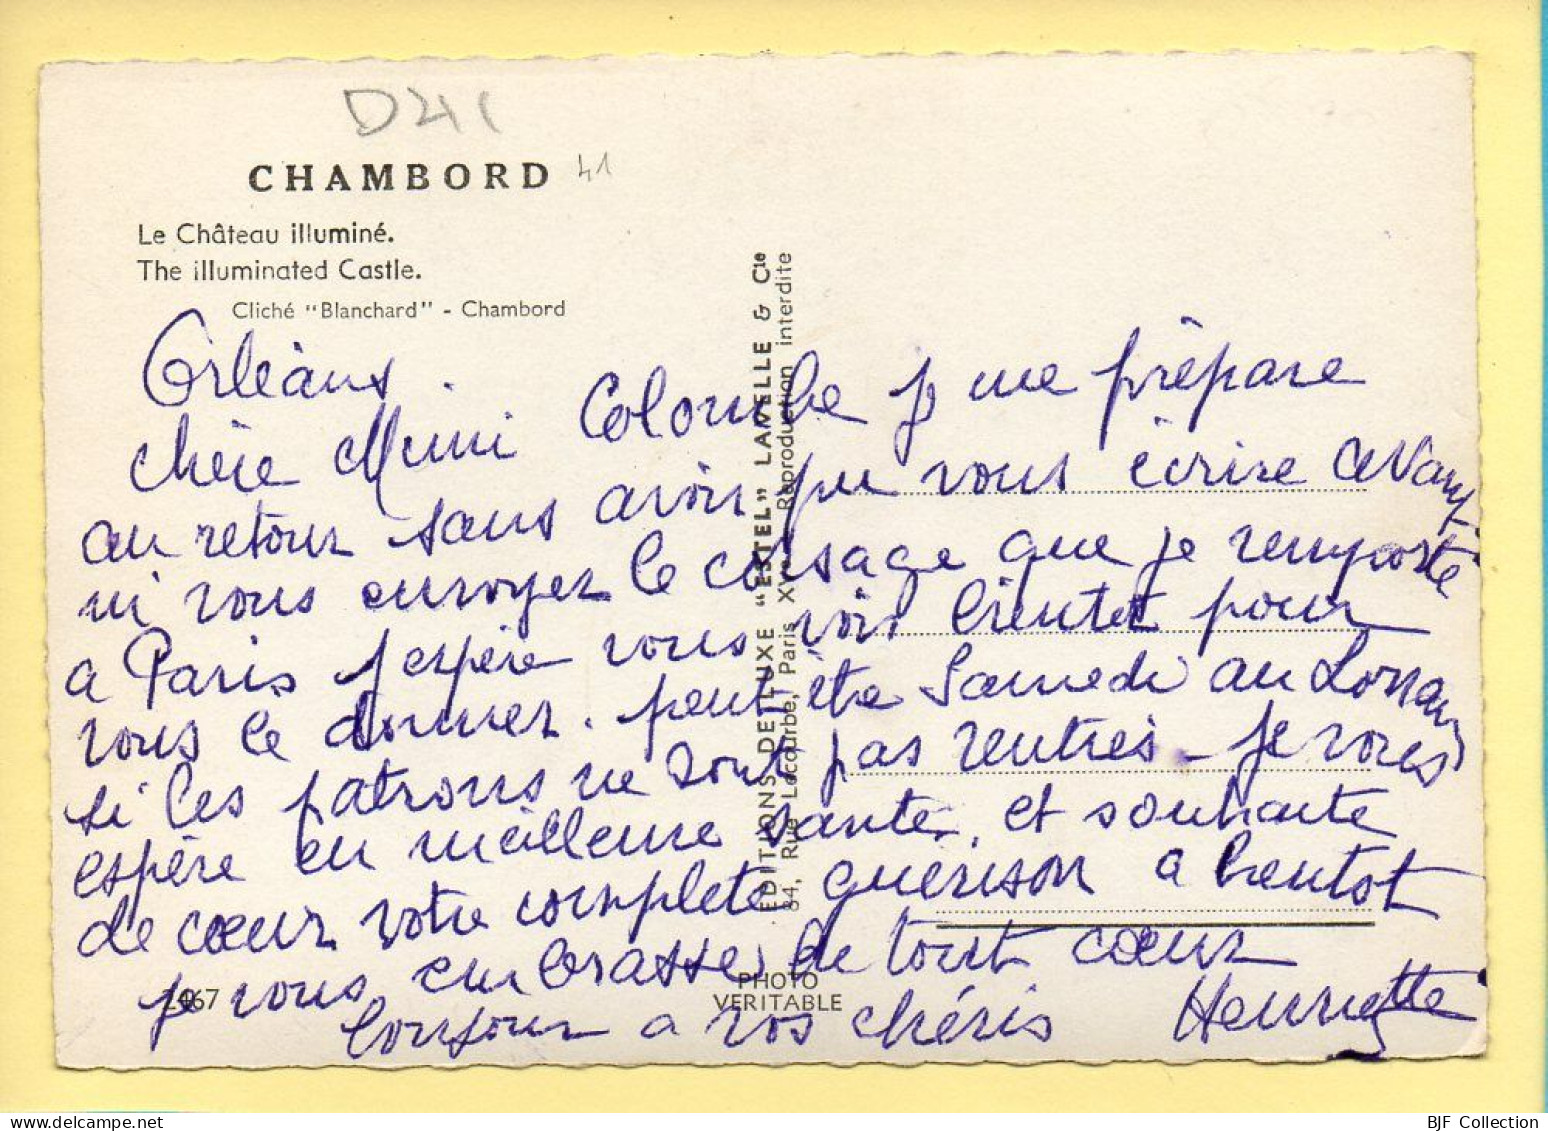 D41
CHAMBORD 41
Le Château illuminé.
The illuminated Castle.
Cliché "Blanchard" - Chambord
Orléans.
chère Mimi Colombe je me prépare
au retour sans avoir pu vous écrire avant
ni vous envoyez le corsage que je remporte
a Paris j espère vous voir bientot pour
vous le donner. peut être Samedi au
si les patrons ne sont pas rentrés - je vous
espère en meilleure santé, et souhaite
de cœur votre complete guérison a bientot
je vous embrasse de tout cœur
bonjour a vos chéris Henriette
2467
EDITIONS DE LUXE "ESTEL" LAVELLE & Cie
84, Rue Lecourbe, Paris XVe - Reproduction interdite
PHOTO
VERITABLE
BJF Collection